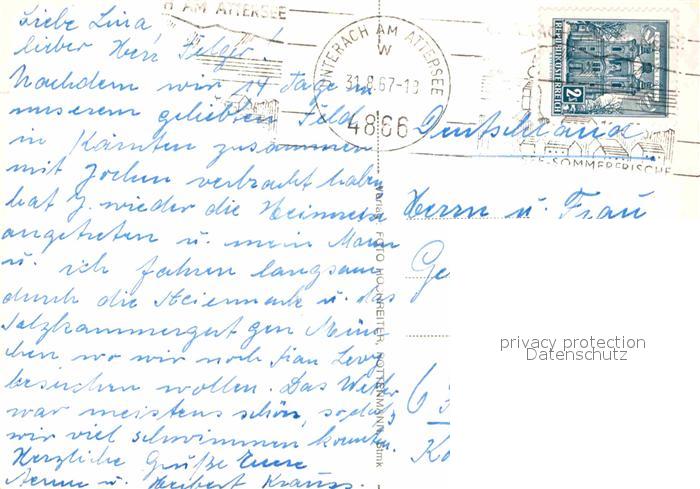 Liebe Lina
lieber Herr Felger!
Nachdem wir 14 Tage in
unserem geliebten Feld
in Kärnten zusammen
mit Jochen verbracht haben
hat J. wieder die Heimreise
angetreten u. mein Mann
u. ich fahren langsam
durch die Steiermark u. das
Salzkammergut gen Mün-
chen wo wir noch Frau Levy
besuchen wollen. Das Wetter
war meistens schön, sodass
wir viel schwimmen konnten.
Herzliche Grüße Eure
Aenne u. Heribert Krauss.
H AM ATTERSEE
UNTERACH AM ATTERSEE
W
31.8.67-18
4866
REPUBLIK ÖSTERREICH
2
SEE-SOMMERFRISCHE
Deutschland
Herrn u. Frau
Ge
63
Ko
FOTO HOCHREITER, ROTTENMANN, Stmk
privacy protection
Datenschutz